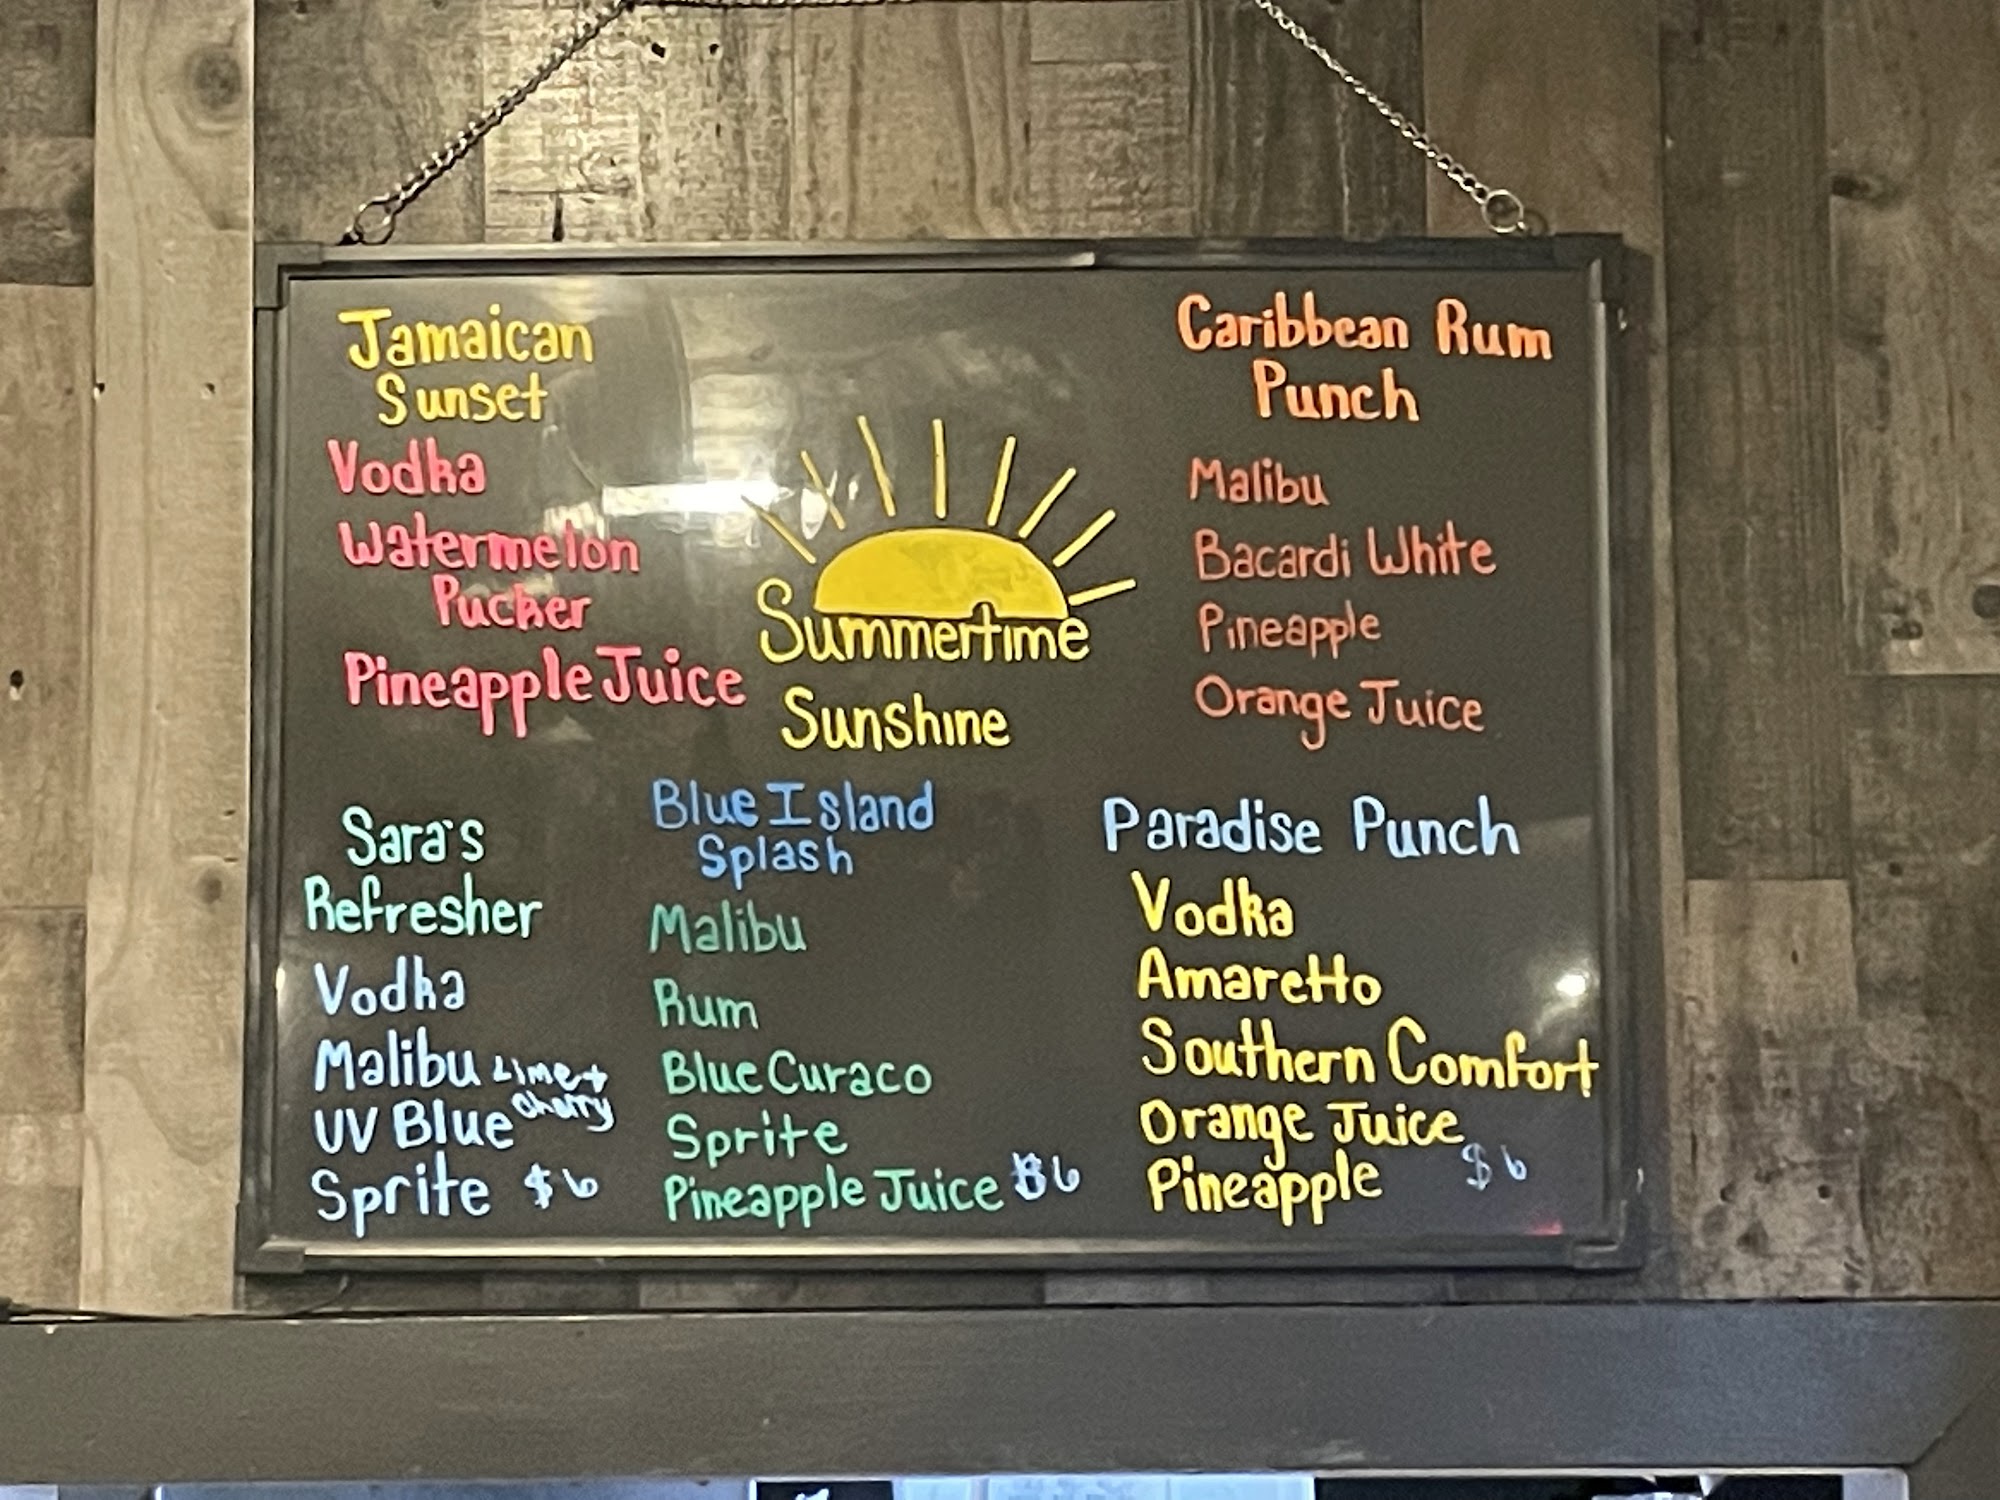 Jamaican
Sunset
Vodka
Watermelon
Pucker
Pineapple Juice
Summertime
Sunshine
Caribbean Rum
Punch
Malibu
Bacardi White
Pineapple
Orange Juice
Sara's
Refresher
Vodka
Malibu Lime +
UV Blue Cherry
Sprite $6
Blue Island
Splash
Malibu
Rum
Blue Curaco
Sprite
Pineapple Juice $6
Paradise Punch
Vodka
Amaretto
Southern Comfort
Orange Juice
Pineapple $6